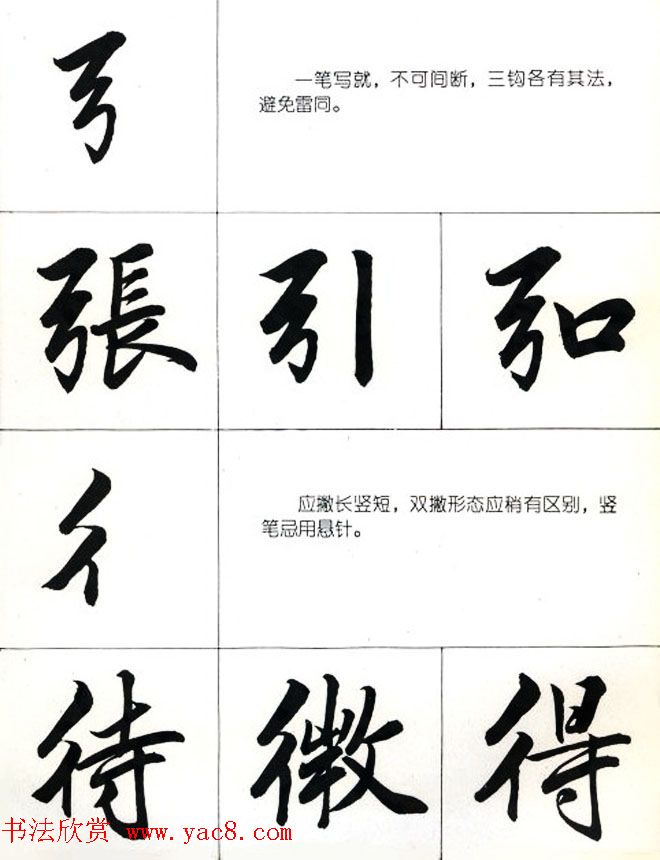 弓
一笔写就，不可间断，三钩各有其法，
避免雷同。
張 引 弘
彳
应撇长竖短，双撇形态应稍有区别，竖
笔忌用悬针。
待 微 得
书法欣赏 www.yac8.com